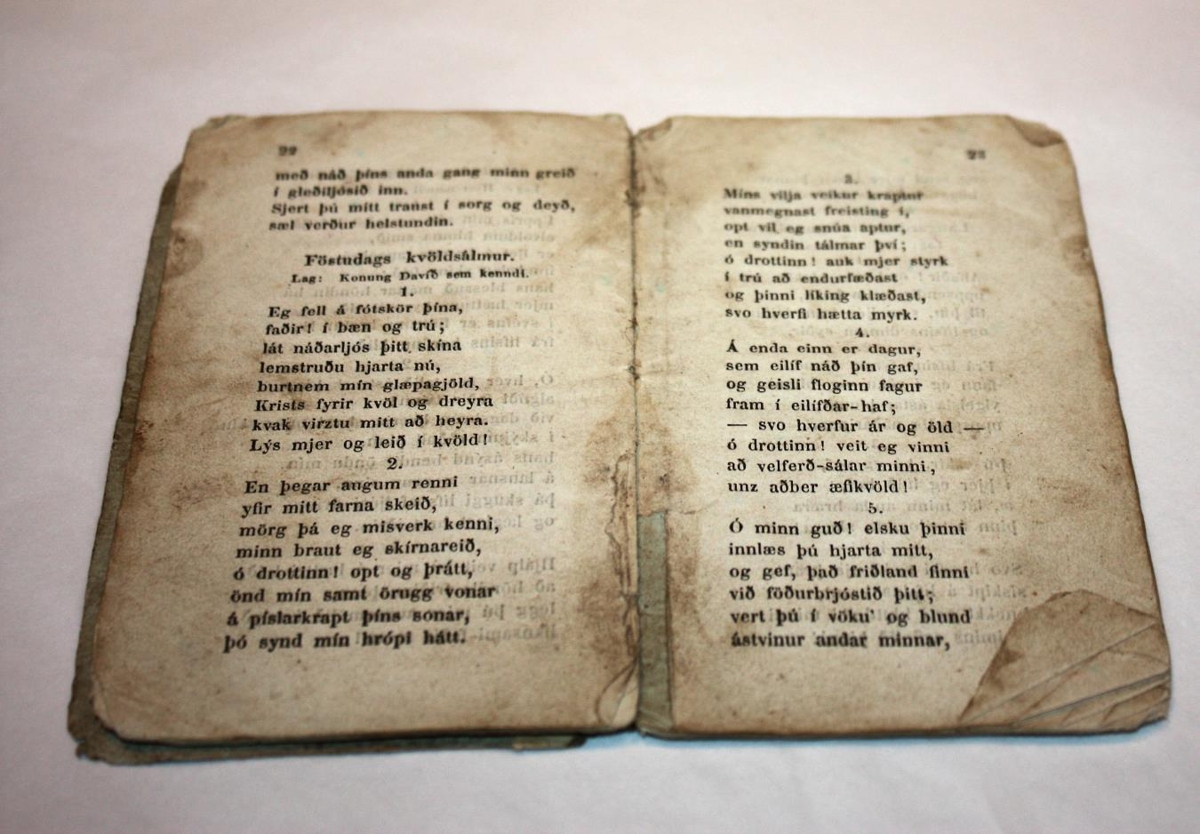 22
með náð þíns anda gang minn greið
í gleðiljósið inn.
Sjert þú mitt traust í sorg og deyð,
sæl verður helstundin.
Föstudags kvöldsálmur.
Lag: Konung Davíð sem kenndi.
1.
Eg fell á fótskör þína,
faðir! í bæn og trú;
lát náðarljós þitt skína
lemstruðu hjarta nú,
burtnem mín glæpagjöld,
Krists fyrir kvöl og dreyra
kvak virztu mitt að heyra.
Lýs mjer og leið í kvöld!
2.
En þegar augum renni
yfir mitt farna skeið,
mörg þá eg misverk kenni,
minn braut eg skírnareið,
ó drottinn! opt og þrátt,
önd mín samt örugg vonar
á píslarkrapt þíns sonar,
þó synd mín hrópi hátt.
23
3.
Míns vilja veikur kraptur
vanmegnast freisting í,
opt vil eg snúa aptur,
en syndin tálmar því;
ó drottinn! auk mjer styrk
í trú að endurfæðast
og þinni líking klæðast,
svo hverfi hætta myrk.
4.
Á enda einn er dagur,
sem eilíf náð þín gaf,
og geisli floginn fagur
fram í eilífðar-haf;
— svo hverfur ár og öld —
ó drottinn! veit eg vinni
að velferð-sálar minni,
unz aðber æfikvöld!
5.
Ó minn guð! elsku þinni
innlæs þú hjarta mitt,
og gef, það friðland finni
við föðurbrjóstið þitt;
vert þú í vöku' og blund
ástvinur andar minnar,